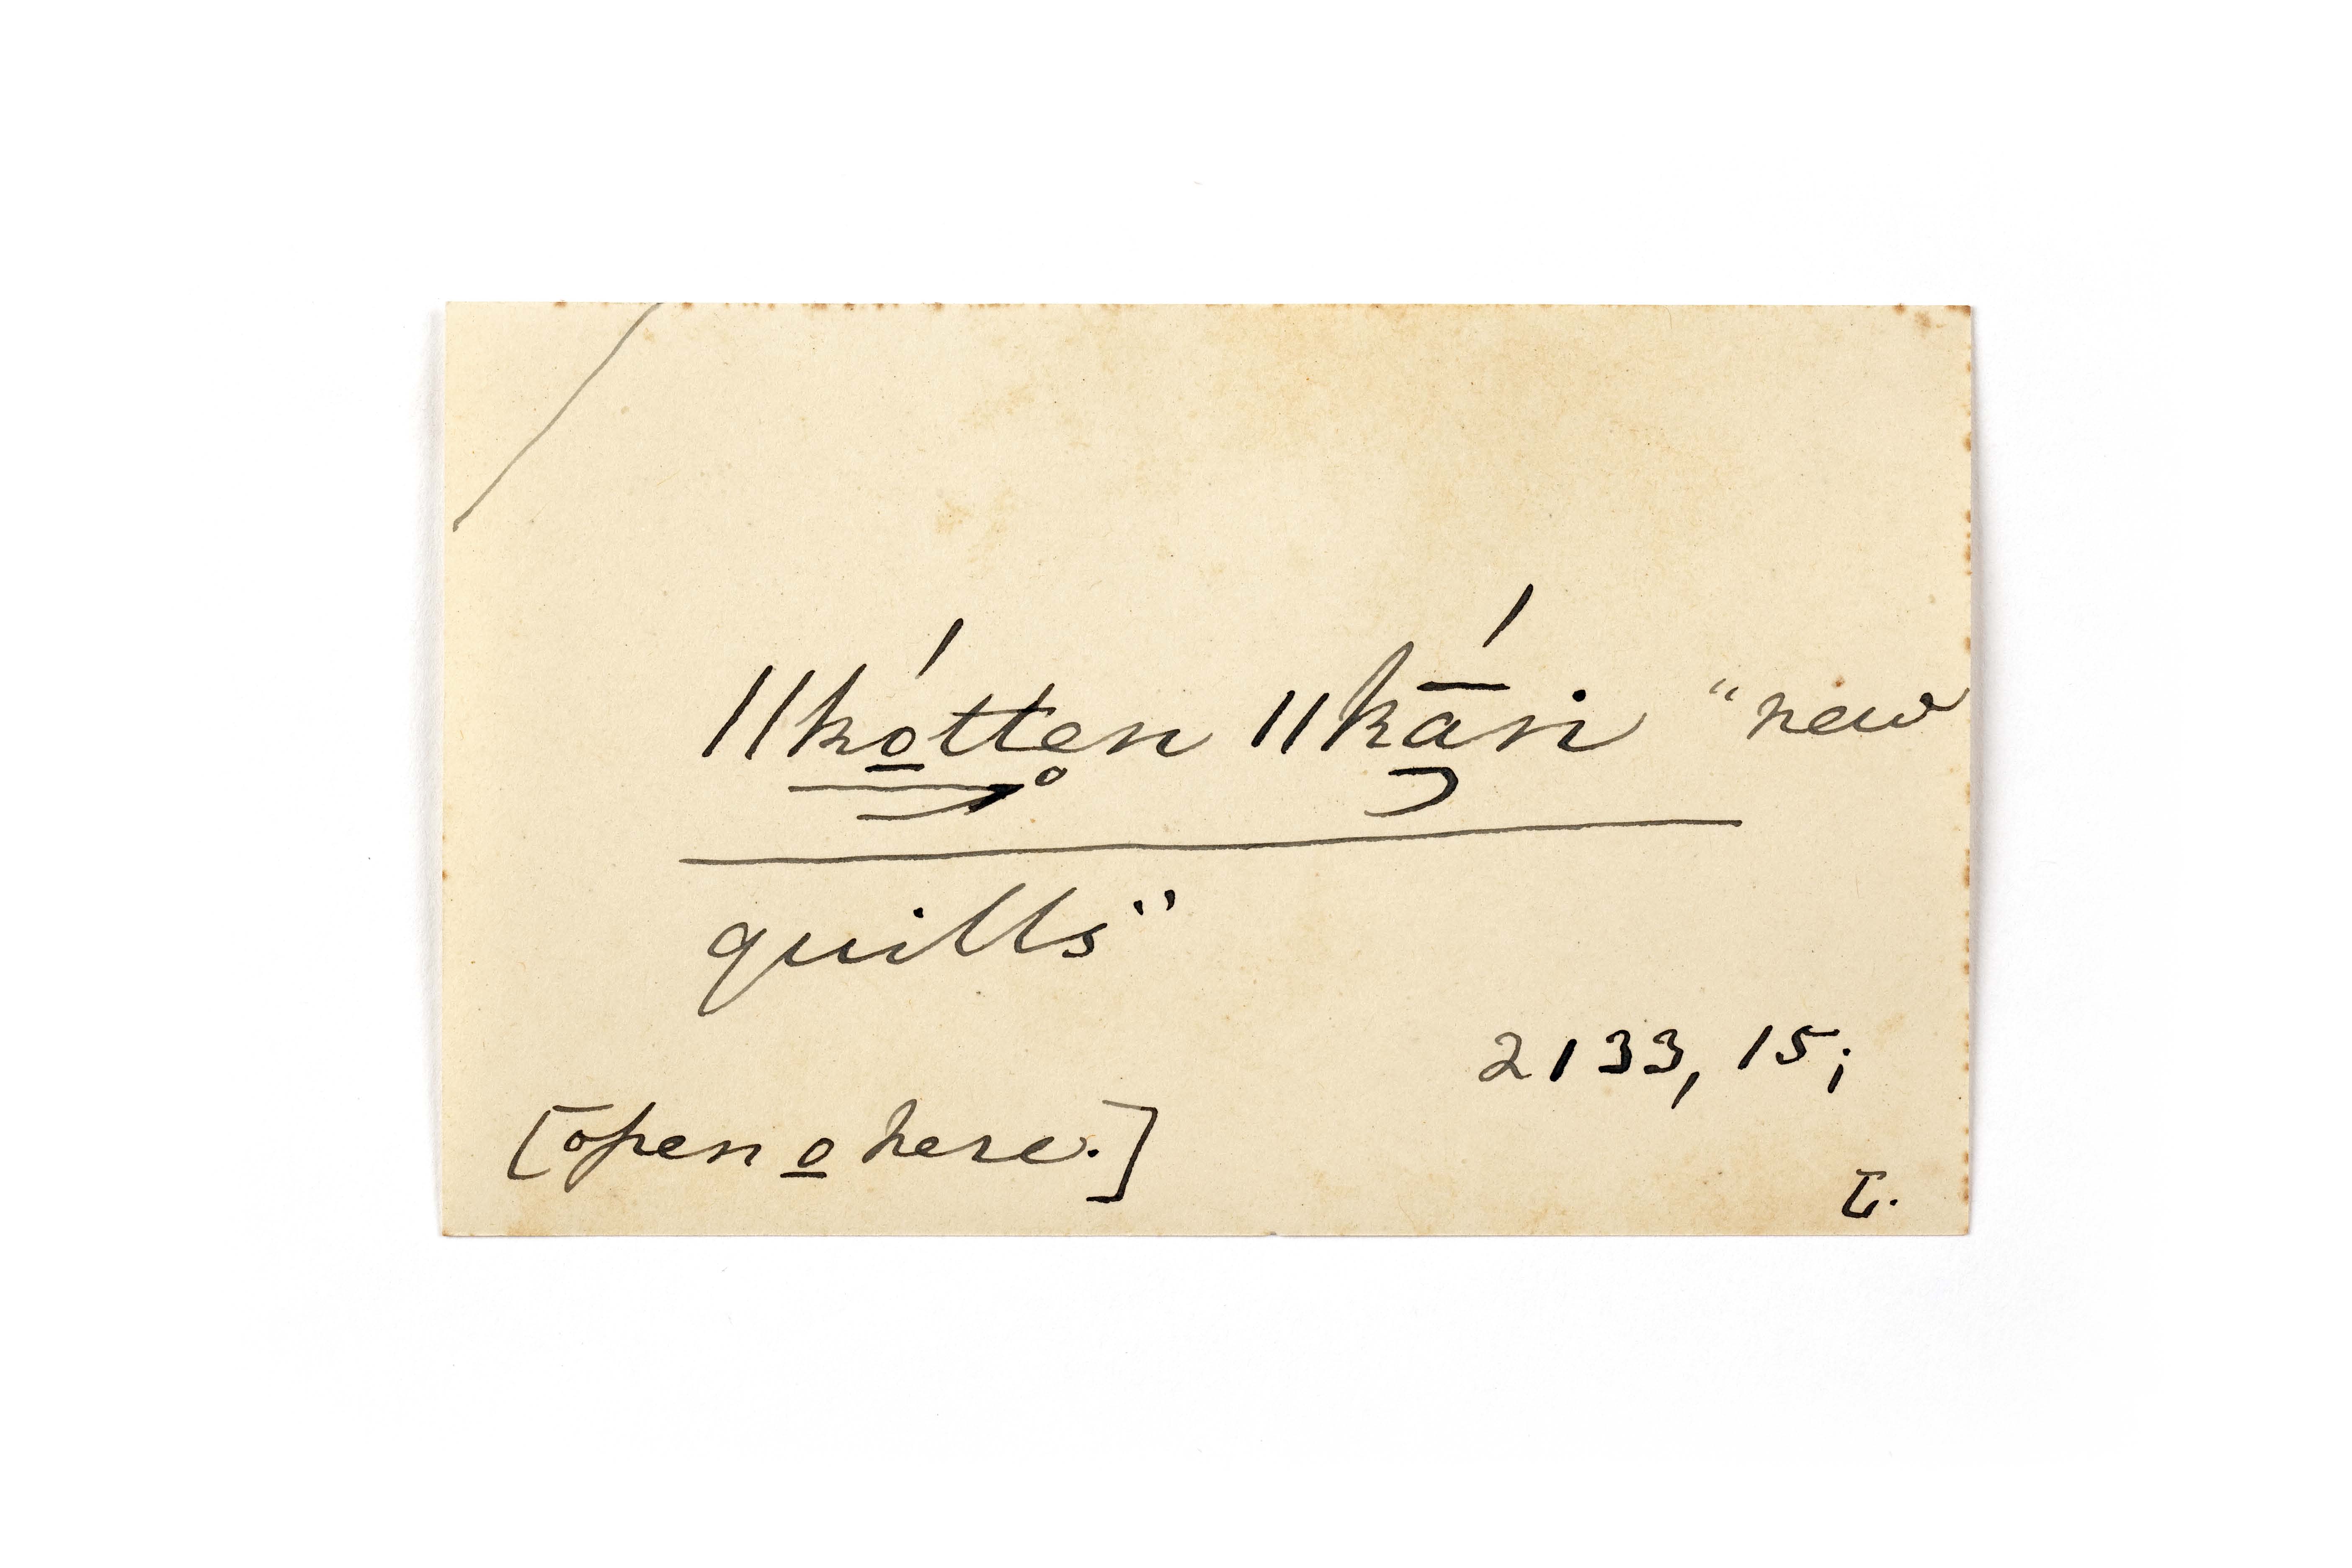 ǁkó̱tten̥ ǁkā́ri “new
quills”
2133, 15;
[open o̱ here.]
L.